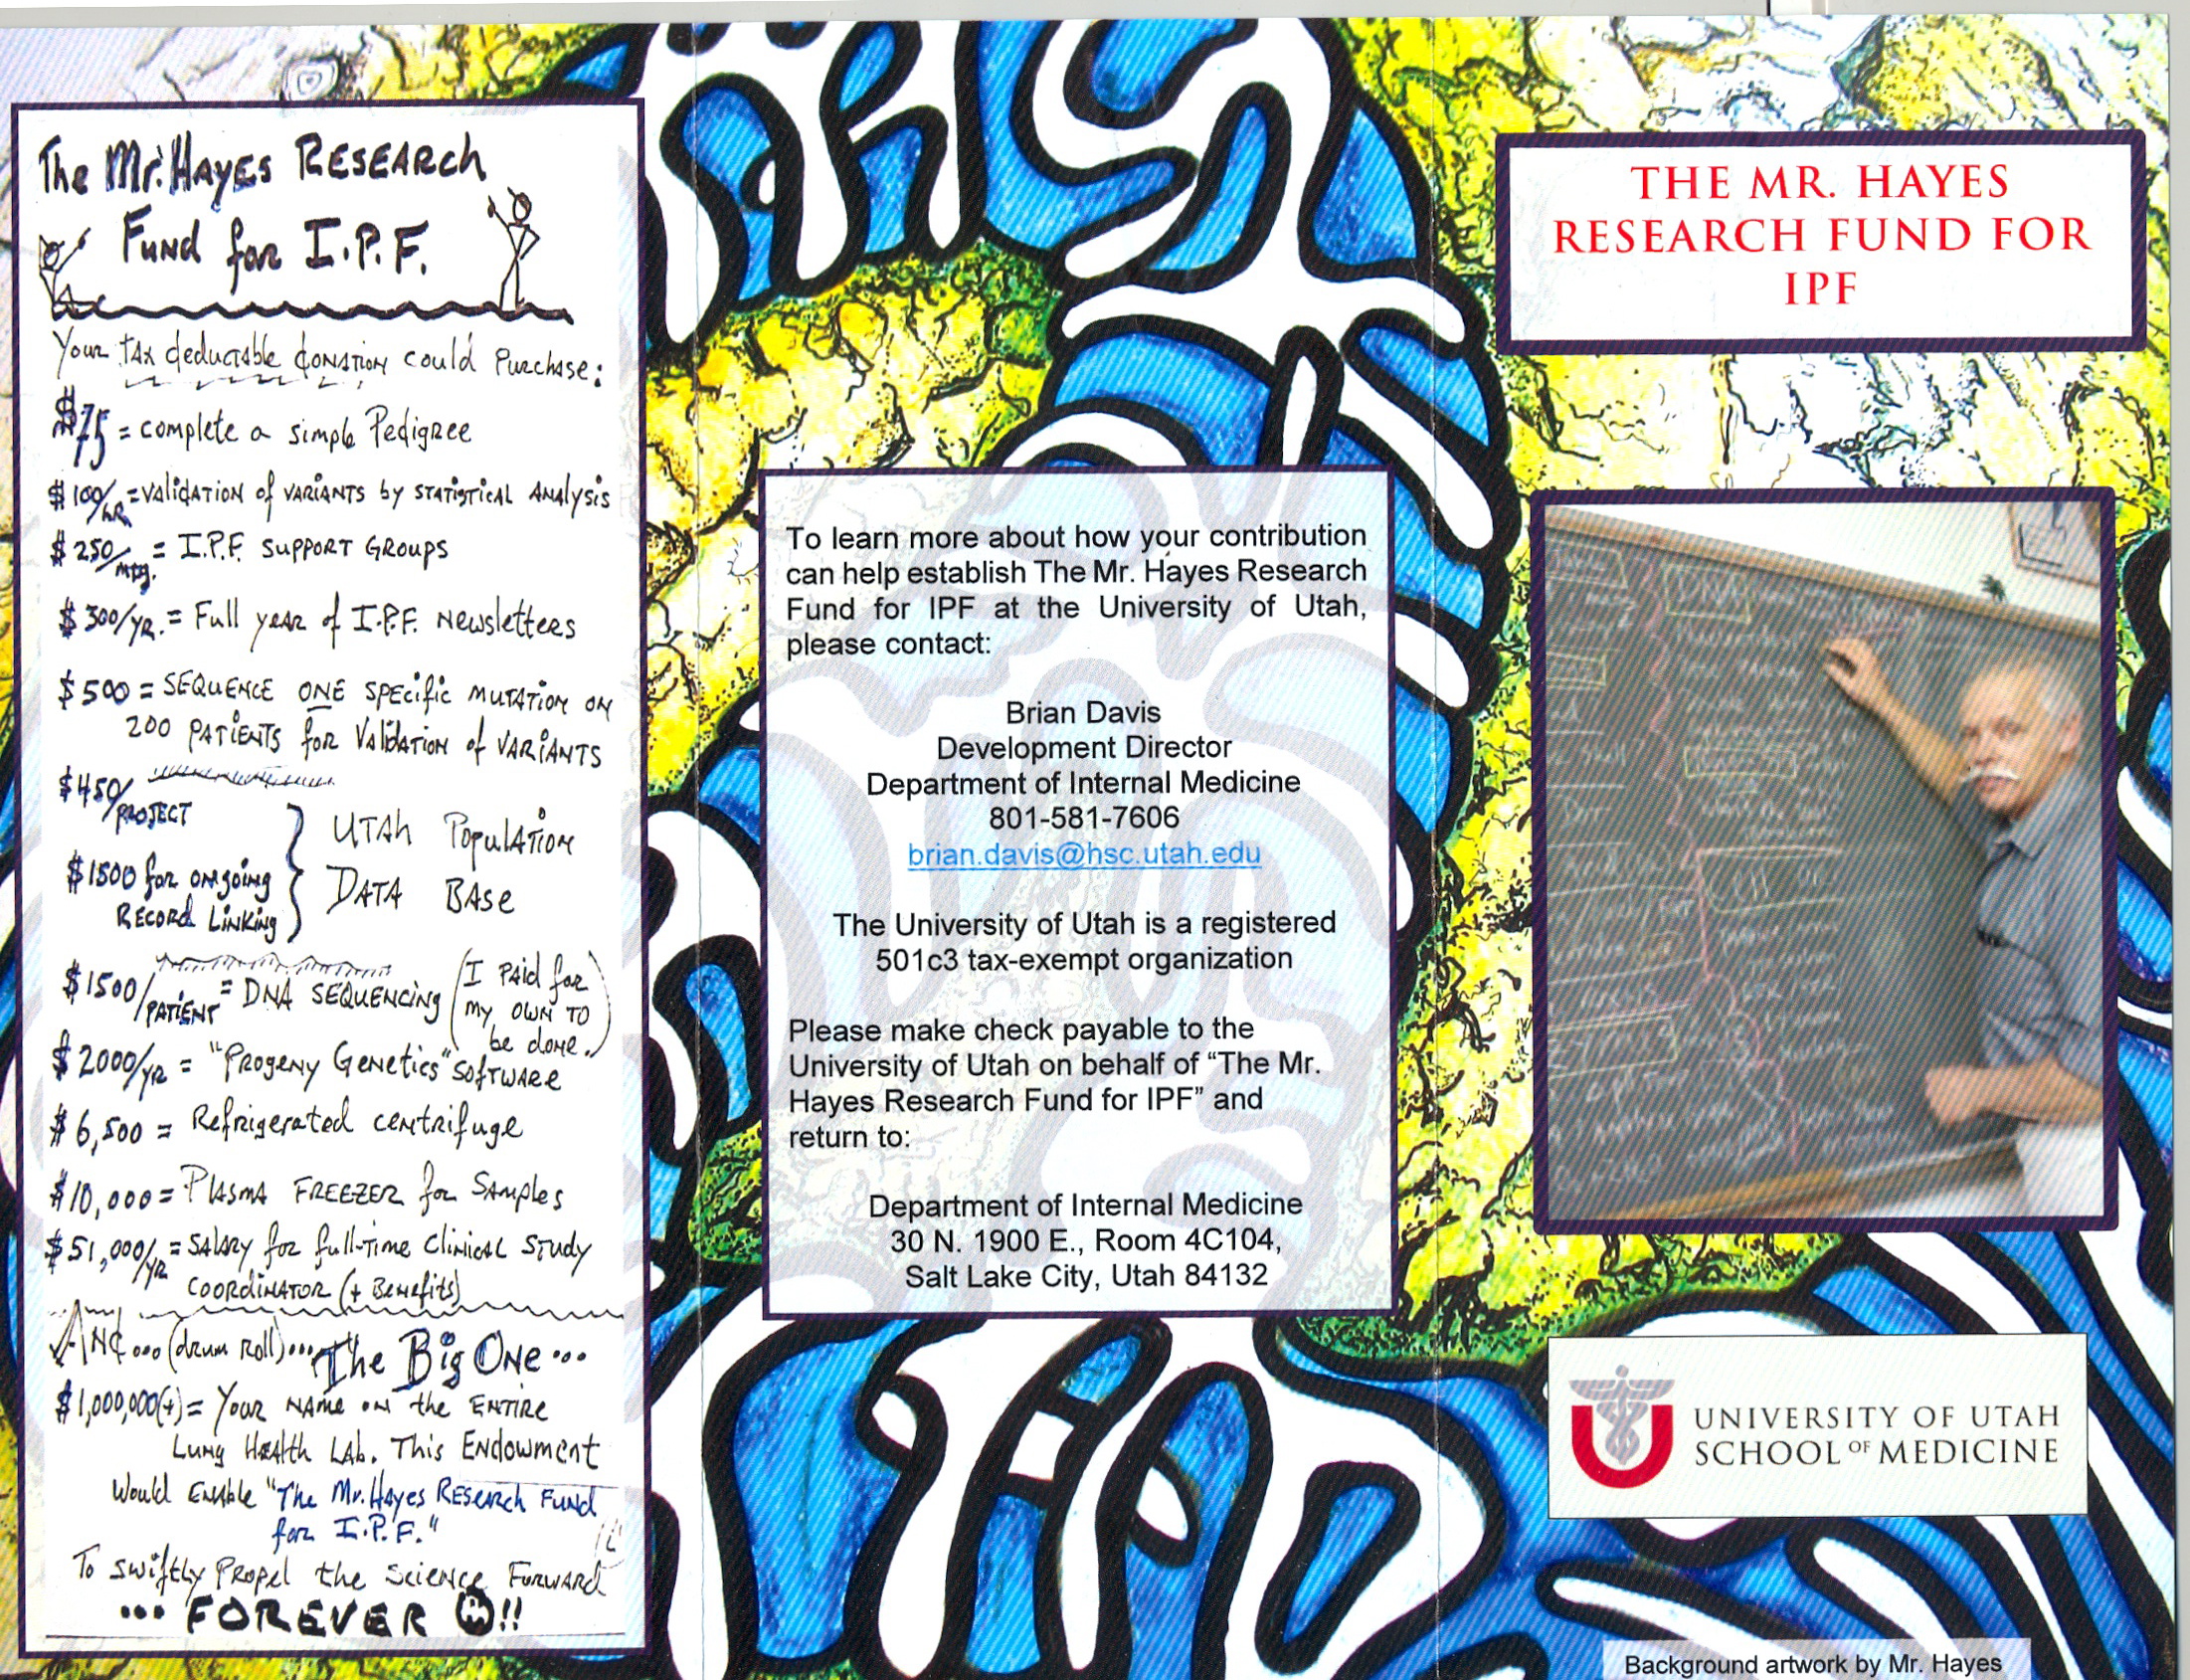 The Mr. Hayes Research
Fund for I.P.F.
Your tax deductable donation could purchase:
$75 = complete a simple Pedigree
$100/HR. = validation of variants by statistical analysis
$250/mtg. = I.P.F. support groups
$300/yr. = Full year of I.P.F. newsletters
$500 = sequence one specific mutation on
200 patients for validation of variants
$450/project
$1500 for ongoing
record linking
Utah Population
Data Base
$1500/patient = DNA sequencing (I paid for
my own to
be done.)
$2000/yr = "Progeny Genetics" software
$6,500 = Refrigerated centrifuge
$10,000 = Plasma freezer for samples
$51,000/yr = salary for full-time clinical study
coordinator (+ benefits)
And... (drum roll)... The Big One...
$1,000,000(+) = Your name on the entire
Lung Health Lab. This Endowment
would enable "The Mr. Hayes Research Fund
for I.P.F."
To swiftly propel the science forward
... FOREVER !!
To learn more about how your contribution
can help establish The Mr. Hayes Research
Fund for IPF at the University of Utah,
please contact:
Brian Davis
Development Director
Department of Internal Medicine
801-581-7606
brian.davis@hsc.utah.edu
The University of Utah is a registered
501c3 tax-exempt organization
Please make check payable to the
University of Utah on behalf of “The Mr.
Hayes Research Fund for IPF” and
return to:
Department of Internal Medicine
30 N. 1900 E., Room 4C104,
Salt Lake City, Utah 84132
THE MR. HAYES
RESEARCH FUND FOR
IPF
UNIVERSITY OF UTAH
SCHOOL OF MEDICINE
Background artwork by Mr. Hayes